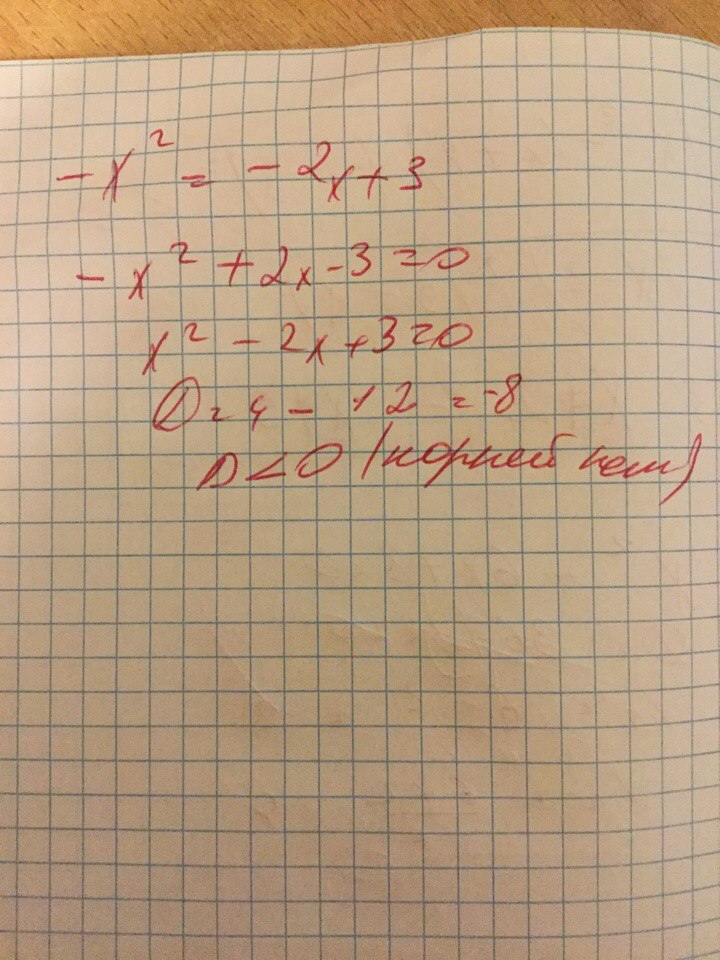 -x² = -2x+3
-x²+2x-3=0
x²-2x+3=0
D=4-12=-8
D<0 (корней нет)